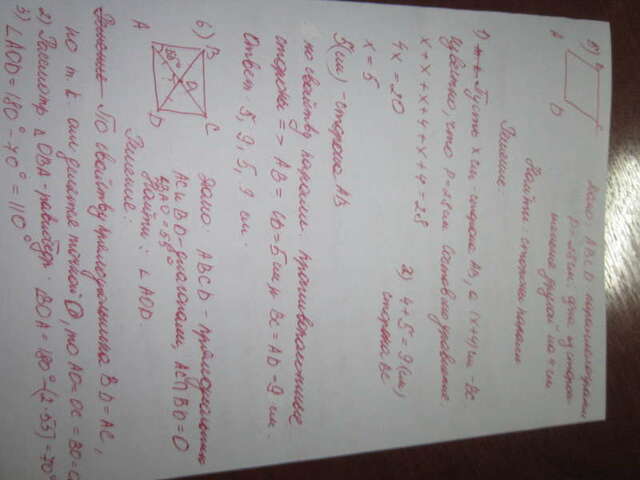 а)
B
C
A
D
Дано: ABCD параллелограмм
P=28 см; одна из сторон
меньше другой на 4 см
Найти: стороны паралл.
Решение:
1) Пусть x см - сторона AB, а (x+4) см - BC.
Известно, что P=28 см. Составим уравнение:
x + x + x + 4 + x + 4 = 28
4x = 20
x = 5
5 (см) - сторона AB
2) 4+5=9 (см)
сторона BC
по свойству паралл. противоположные
стороны => AB = CD = 5 см, и BC = AD = 9 см.
Ответ: 5, 9, 5, 9 см.
б) B
C
A
D
O
55°
Дано: ABCD - прямоугольник
AC и BD - диагонали AC∩BD=O
Найти: ∠AOD.
Решение:
Решение По свойству прямоугольника BD=AC,
но т.к. они делятся точкой O, то AO=OC=BO=
2) Рассмотр. △OBA - равнобедр. BOA = 180° - (2·55) = 70°
3) ∠AOD = 180° - 70° = 110°